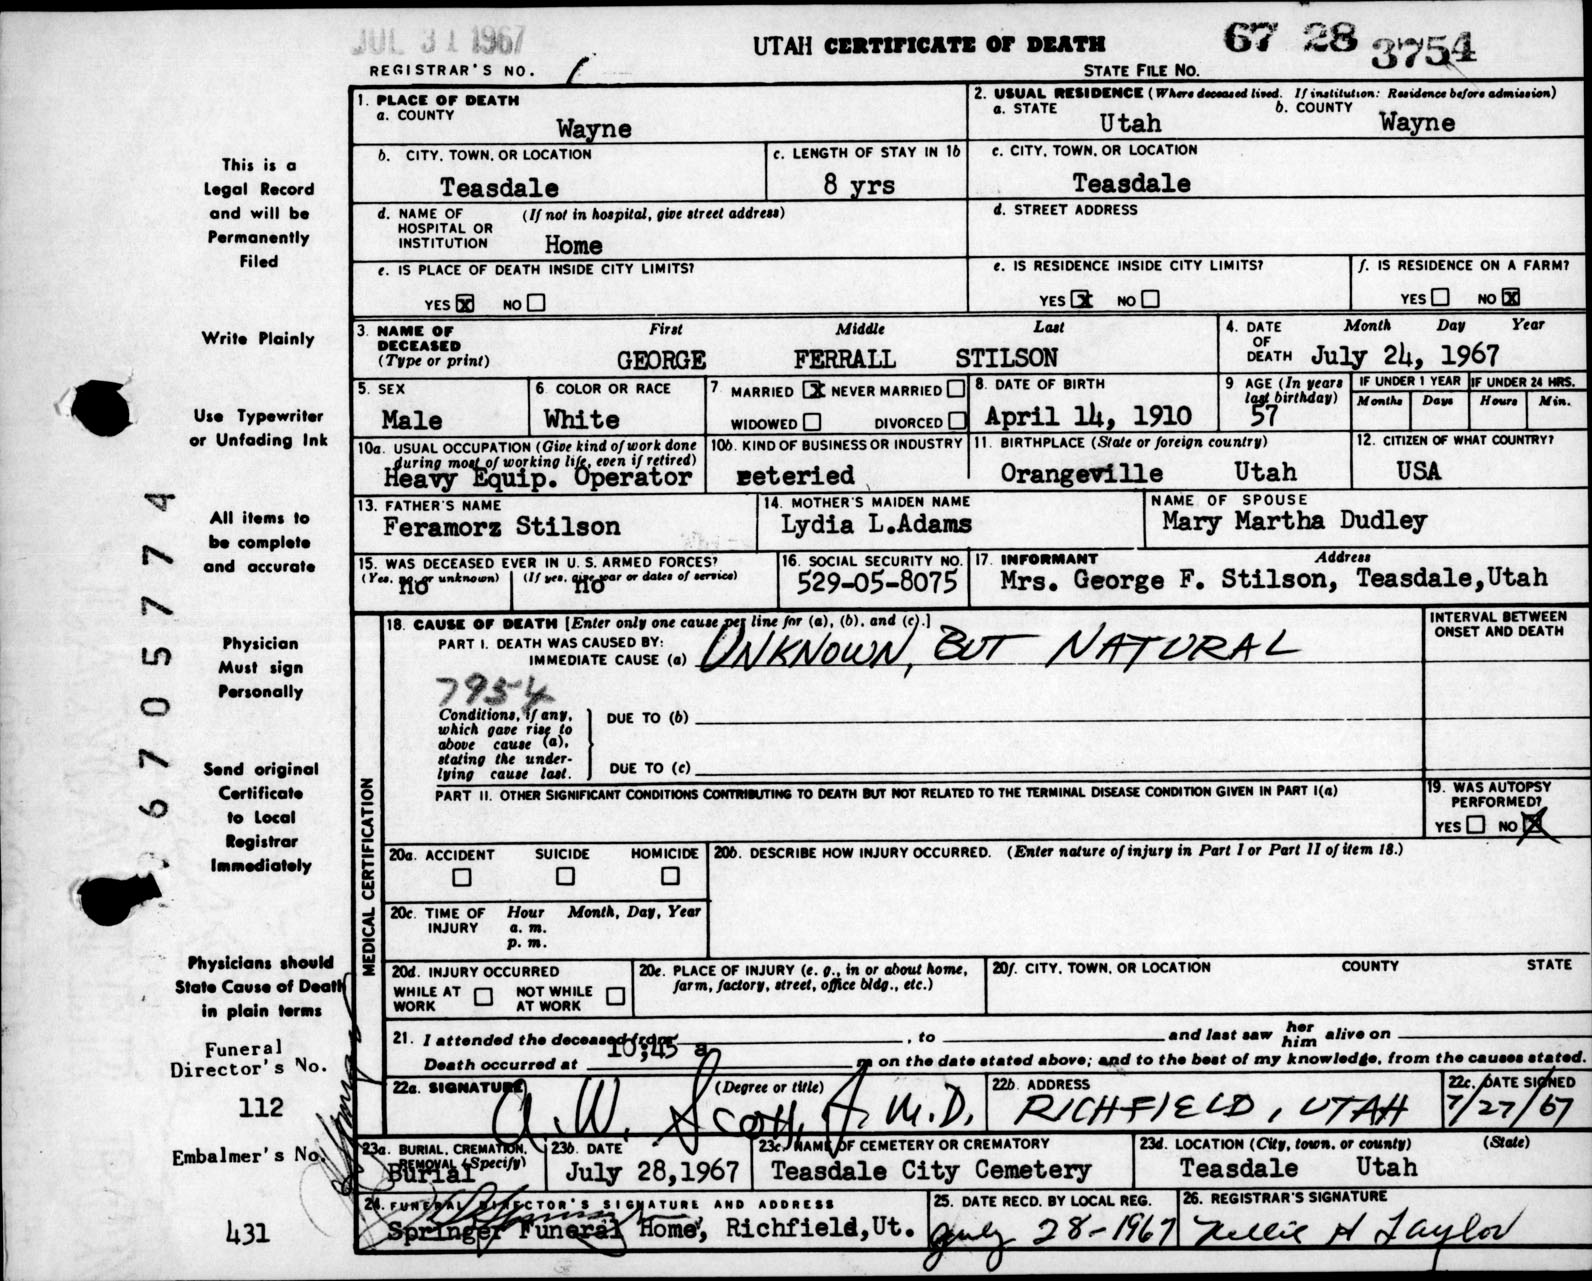 JUL 31 1967
UTAH CERTIFICATE OF DEATH
67 28 3754
REGISTRAR'S NO.
STATE FILE NO.
1. PLACE OF DEATH
a. COUNTY
Wayne
2. USUAL RESIDENCE (Where deceased lived. If institution: Residence before admission)
a. STATE
Utah
b. COUNTY
Wayne
b. CITY, TOWN, OR LOCATION
Teasdale
c. LENGTH OF STAY IN 1b
8 yrs
c. CITY, TOWN, OR LOCATION
Teasdale
d. NAME OF HOSPITAL OR INSTITUTION
(If not in hospital, give street address)
Home
d. STREET ADDRESS
e. IS PLACE OF DEATH INSIDE CITY LIMITS?
YES X NO
e. IS RESIDENCE INSIDE CITY LIMITS?
YES X NO
f. IS RESIDENCE ON A FARM?
YES NO X
3. NAME OF DECEASED
(Type or print)
First Middle Last
GEORGE FERRALL STILSON
4. DATE OF DEATH
Month Day Year
July 24, 1967
5. SEX
Male
6. COLOR OR RACE
White
7. MARRIED X NEVER MARRIED
WIDOWED DIVORCED
8. DATE OF BIRTH
April 14, 1910
9 AGE (In years last birthday)
57
IF UNDER 1 YEAR
Months Days
IF UNDER 24 HRS.
Hours Min.
10a. USUAL OCCUPATION (Give kind of work done during most of working life, even if retired)
Heavy Equip. Operator
10b. KIND OF BUSINESS OR INDUSTRY
reteried
11. BIRTHPLACE (State or foreign country)
Orangeville Utah
12. CITIZEN OF WHAT COUNTRY?
USA
13. FATHER'S NAME
Feramorz Stilson
14. MOTHER'S MAIDEN NAME
Lydia L.Adams
NAME OF SPOUSE
Mary Martha Dudley
15. WAS DECEASED EVER IN U. S. ARMED FORCES?
(Yes, no, or unknown) (If yes, give war or dates of service)
no no
16. SOCIAL SECURITY NO.
529-05-8075
17. INFORMANT Address
Mrs. George F. Stilson, Teasdale,Utah
18. CAUSE OF DEATH [Enter only one cause per line for (a), (b), and (c).]
PART I. DEATH WAS CAUSED BY:
IMMEDIATE CAUSE (a) UNKNOWN, BUT NATURAL
7954
Conditions, if any, which gave rise to above cause (a), stating the underlying cause last.
DUE TO (b)
DUE TO (c)
INTERVAL BETWEEN ONSET AND DEATH
PART II. OTHER SIGNIFICANT CONDITIONS CONTRIBUTING TO DEATH BUT NOT RELATED TO THE TERMINAL DISEASE CONDITION GIVEN IN PART I(a)
19. WAS AUTOPSY PERFORMED?
YES NO X
MEDICAL CERTIFICATION
20a. ACCIDENT SUICIDE HOMICIDE
20b. DESCRIBE HOW INJURY OCCURRED. (Enter nature of injury in Part I or Part II of item 18.)
20c. TIME OF INJURY
Hour Month, Day, Year
a. m.
p. m.
20d. INJURY OCCURRED
WHILE AT WORK NOT WHILE AT WORK
20e. PLACE OF INJURY (e. g., in or about home, farm, factory, street, office bldg., etc.)
20f. CITY, TOWN, OR LOCATION COUNTY STATE
21. I attended the deceased from , to and last saw her him alive on
Death occurred at 10;45 a m on the date stated above; and to the best of my knowledge, from the causes stated.
22a. SIGNATURE (Degree or title)
A. W. Scott, Jr M.D.
22b. ADDRESS
RICHFIELD, UTAH
22c. DATE SIGNED
7/27/67
23a. BURIAL, CREMATION, REMOVAL (Specify)
Burial
23b. DATE
July 28,1967
23c. NAME OF CEMETERY OR CREMATORY
Teasdale City Cemetery
23d. LOCATION (City, town, or county) (State)
Teasdale Utah
24. FUNERAL DIRECTOR'S SIGNATURE AND ADDRESS
Springer Funeral Home, Richfield,Ut.
25. DATE RECD. BY LOCAL REG.
July 28-1967
26. REGISTRAR'S SIGNATURE
Nellie H Taylor
This is a
Legal Record
and will be
Permanently
Filed
Write Plainly
Use Typewriter
or Unfading Ink
All items to
be complete
and accurate
Physician
Must sign
Personally
Send original
Certificate
to Local
Registrar
Immediately
Physicians should
State Cause of Death
in plain terms
Funeral
Director's No.
112
Embalmer's No.
431
6705774